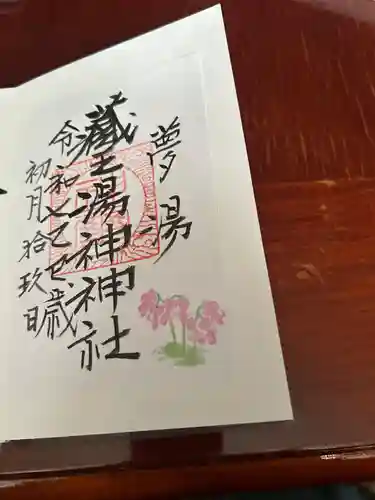 夢湯
蔵王湯神神社
令和乙巳歳
初月拾玖日